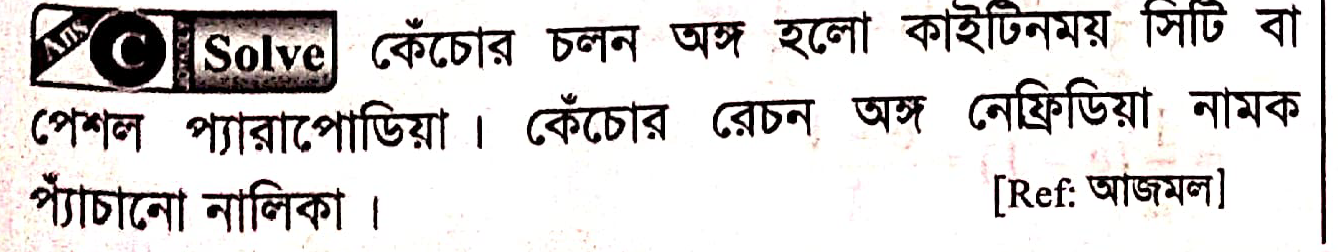 Ans C Solve কেঁচোর চলন অঙ্গ হলো কাইটিনময় সিটি বা
পেশল প্যারাপোডিয়া। কেঁচোর রেচন অঙ্গ নেফ্রিডিয়া নামক
প্যাঁচানো নালিকা। [Ref: আজমল]